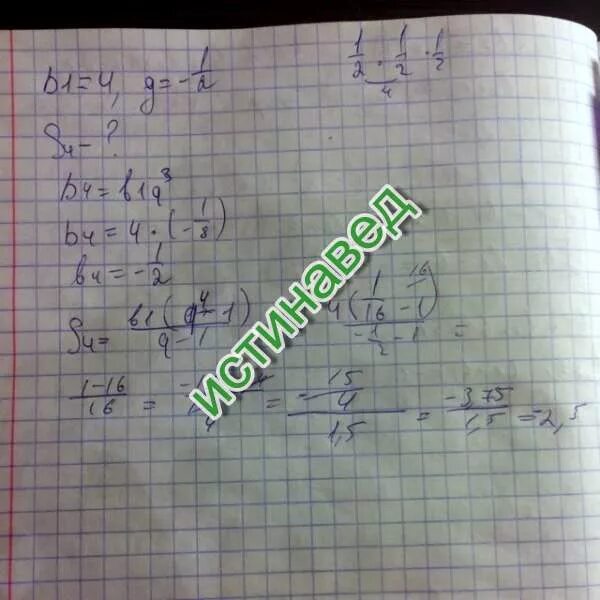 b1=4, q=-1/2
1/2 · 1/2 · 1/2
4
S4-?
b4=b1q³
b4=4·(-1/8)
b4=-1/2
S4= b1(q⁴-1)/q-1 4(1/16-1)/-1/2-1 =
1-16/16 = = -15/4/1,5 = -3,75/1,5 =2,5
ИСТИНАВЕД